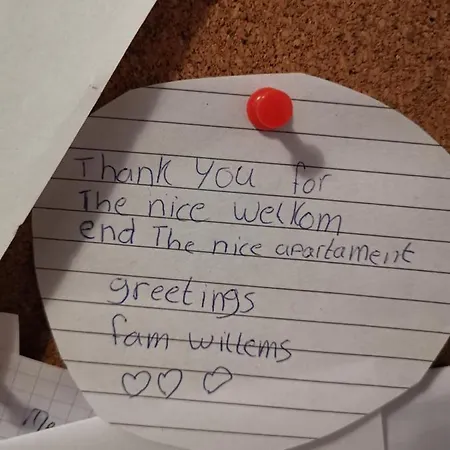 Thank You for
The nice welkom
end The nice apartament
greetings
fam willems
Me